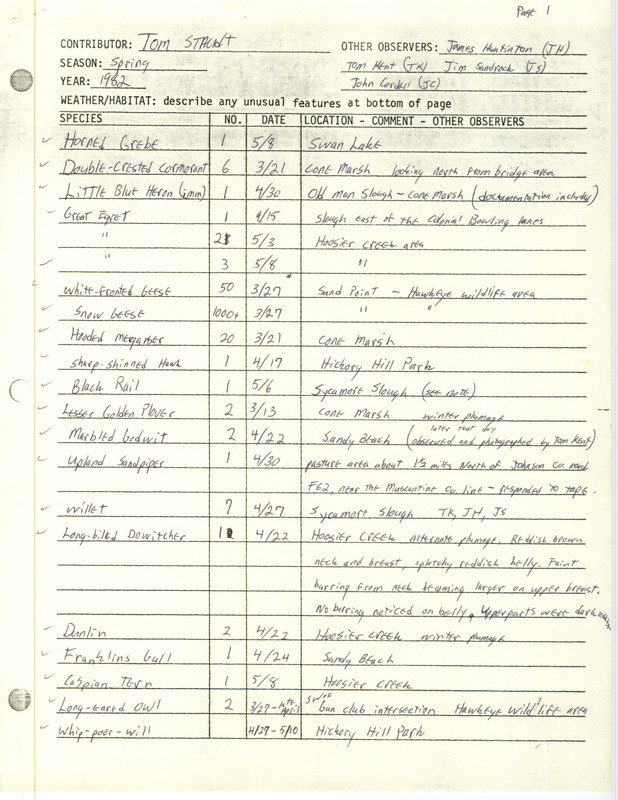 Page 1
CONTRIBUTOR: Tom Staudt OTHER OBSERVERS: James Huntington (JH)
SEASON: Spring Tom Kent (TK) Jim Sandrock (JS)
YEAR: 1982 John Cordell (JC)
WEATHER/HABITAT: describe any unusual features at bottom of page
SPECIES NO. DATE LOCATION - COMMENT - OTHER OBSERVERS
Horned Grebe 1 5/8 Swan Lake
Double-Crested Cormorant 6 3/21 Cone Marsh looking north from bridge area
Little Blue Heron (imm) 1 4/30 Old man Slough - Cone Marsh (documentation included)
Great Egret 1 4/15 slough east of the Colonial Bowling lanes
" 2 5/3 Hoosier Creek area
" 3 5/8 "
White-Fronted Geese 50 3/27 Sand Point - Hawkeye Wildlife area
Snow Geese 1000+ 3/27 " "
Hooded Merganser 20 3/21 Cone Marsh
Sharp-shinned Hawk 1 4/17 Hickory Hill Park
Black Rail 1 5/6 Sycamore Slough (see note)
Lesser Golden Plover 2 3/13 Cone Marsh winter plumage
later that day
Marbled Godwit 2 4/22 Sandy Beach (observed and photographed by Tom Kent)
Upland Sandpiper 1 4/30 pasture area about 1½ miles North of Johnson Co. road
F62, near the Muscantine Co. line - responded to tape.
Willet 7 4/27 Sycamore Slough TK, JH, JS
Long-billed Dowitcher 1 4/22 Hoosier Creek Alternate plumage. Reddish brown
neck and breast, splotchy reddish belly. Faint
barring from neck becoming larger on upper breast.
No barring noticed on belly, Upperparts were dark
Dunlin 2 4/22 Hoosier Creek winter plumage
Franklins Gull 1 4/24 Sandy Beach
Caspian Tern 1 5/8 Hoosier Creek
SW of
Long-eared Owl 2 3/27 - April Gun club intersection Hawkeye Wildlife area
Whip-poor-will 4/27-5/10 Hickory Hill Park